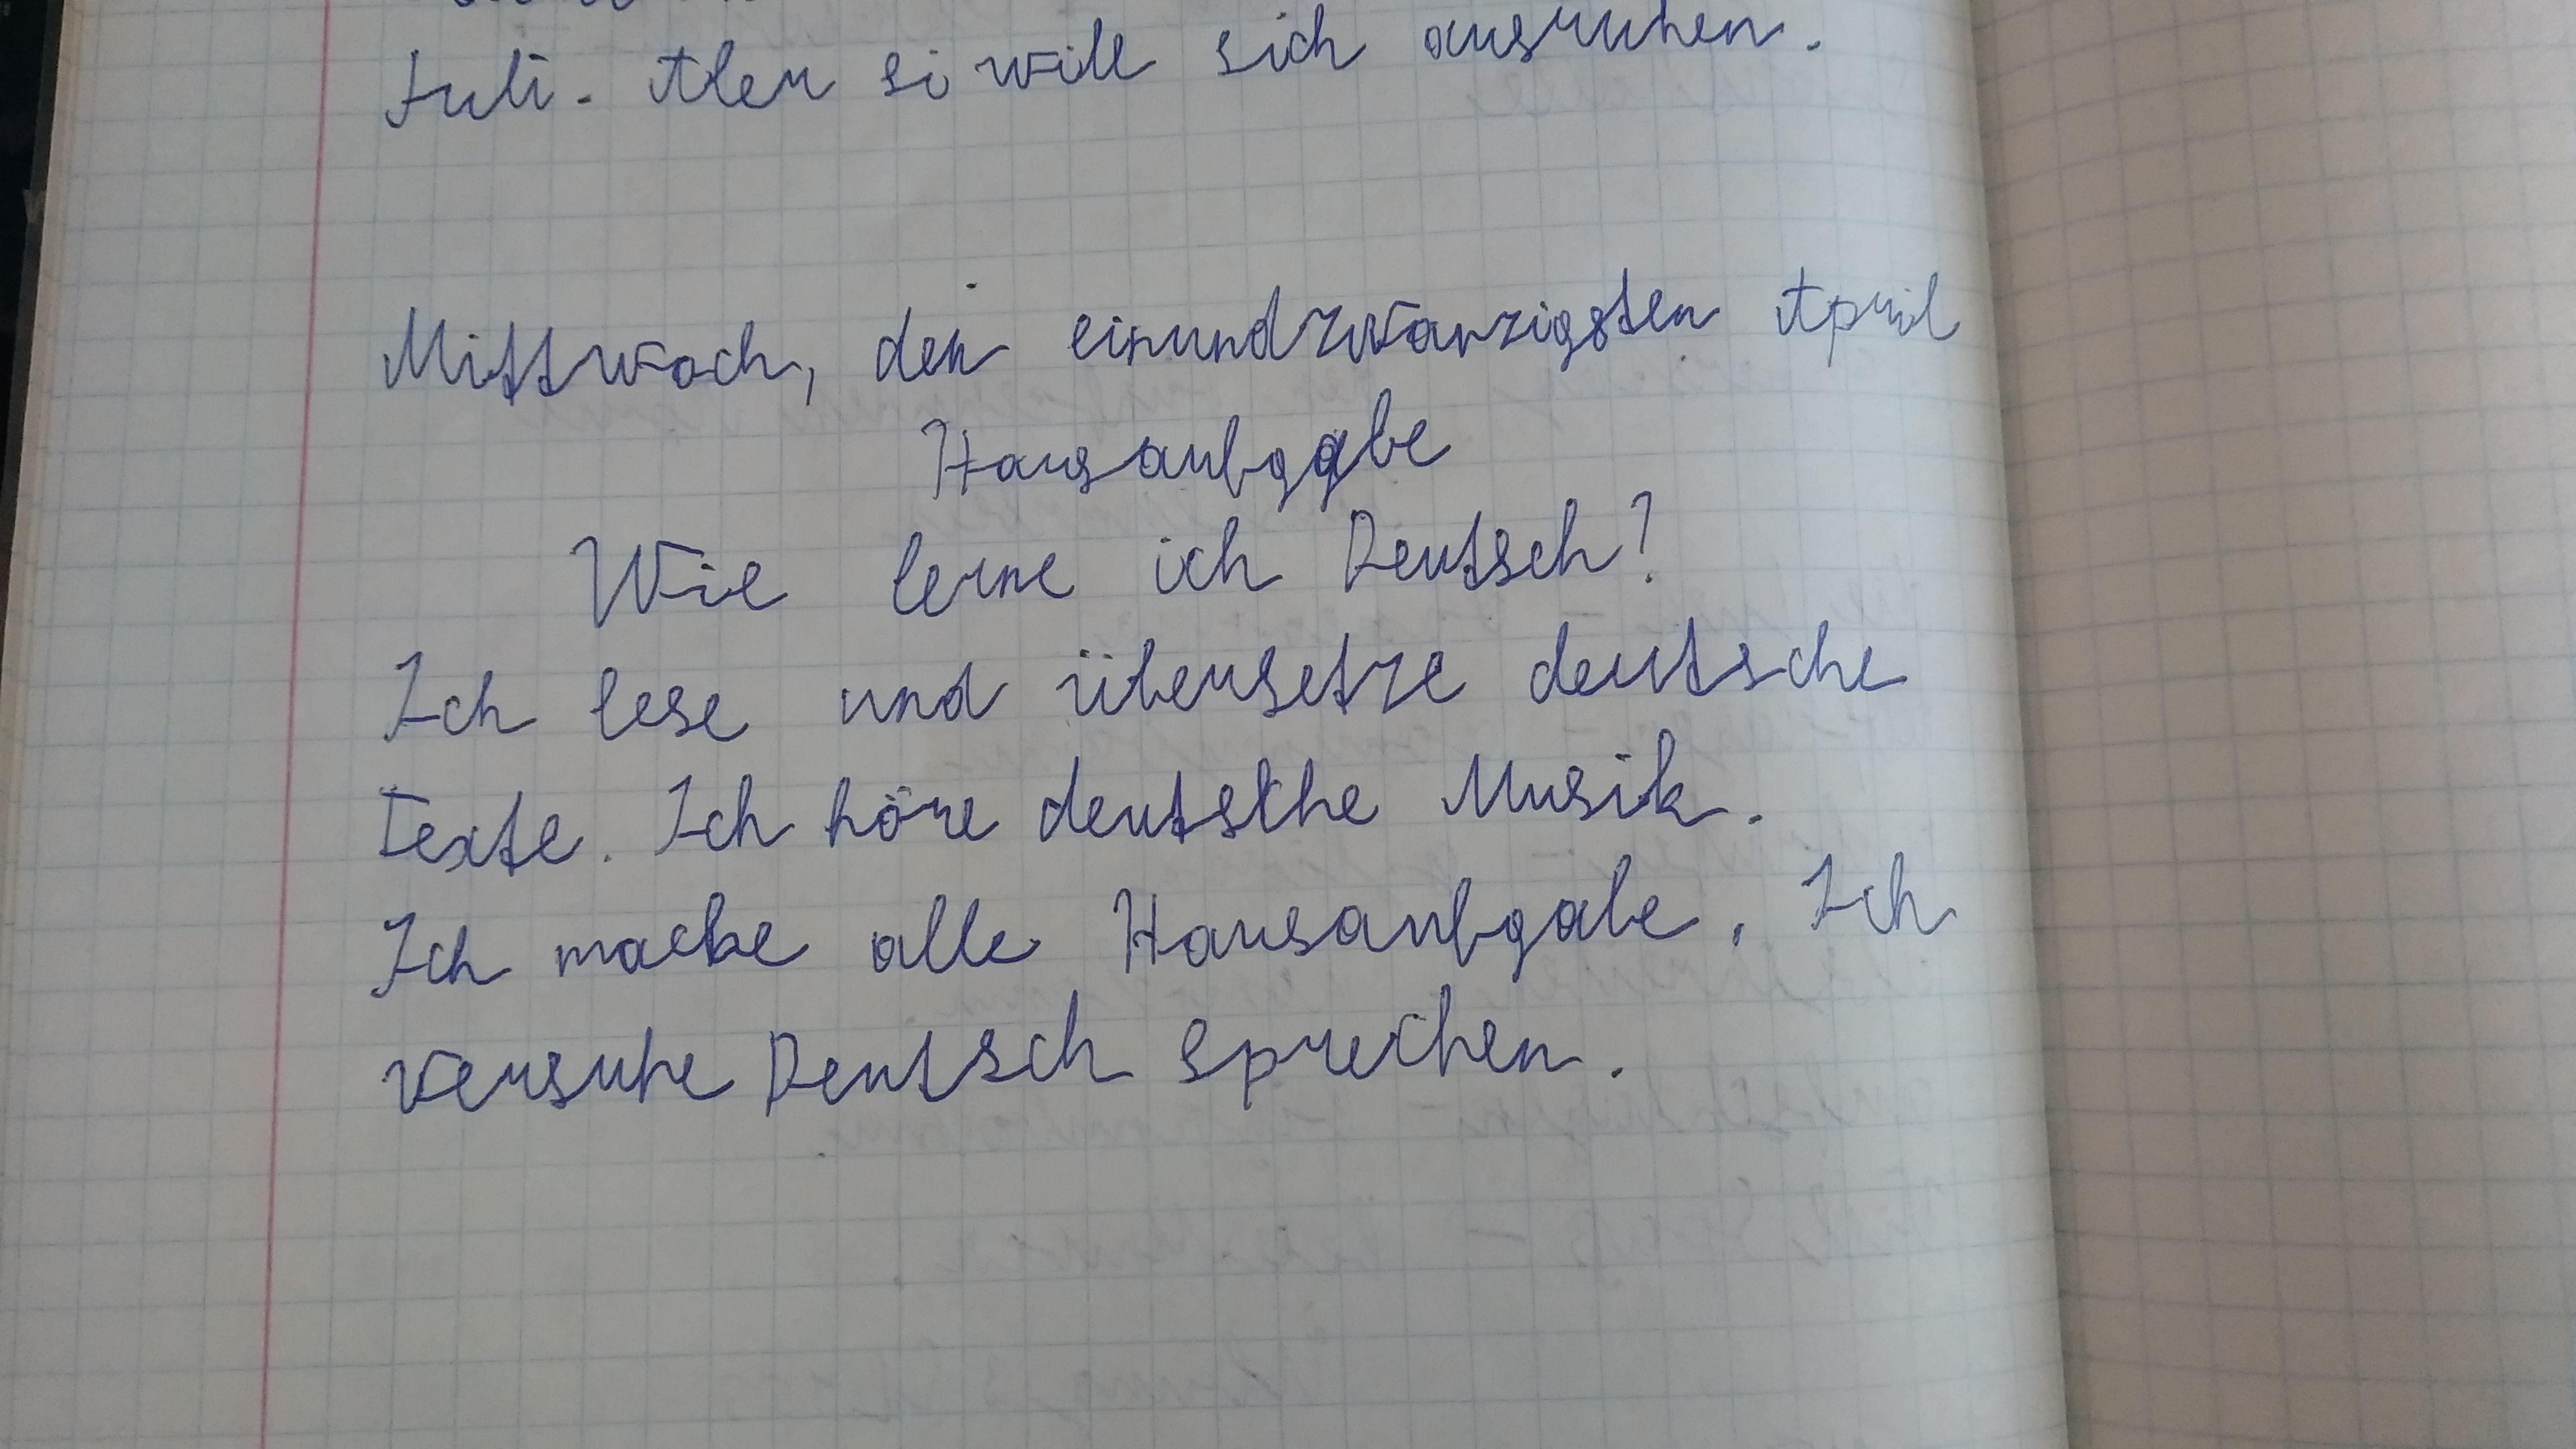 Juli. Aber si will sich ausruhen.
Mittwoch, den einundzwanzigsten April
Hausaufgabe
Wie lerne ich Deutsch?
Ich lese und übersetze deutsche
Texte. Ich höre deutsche Musik.
Ich mache alle Hausaufgabe. Ich
versuhe Deutsch sprechen.